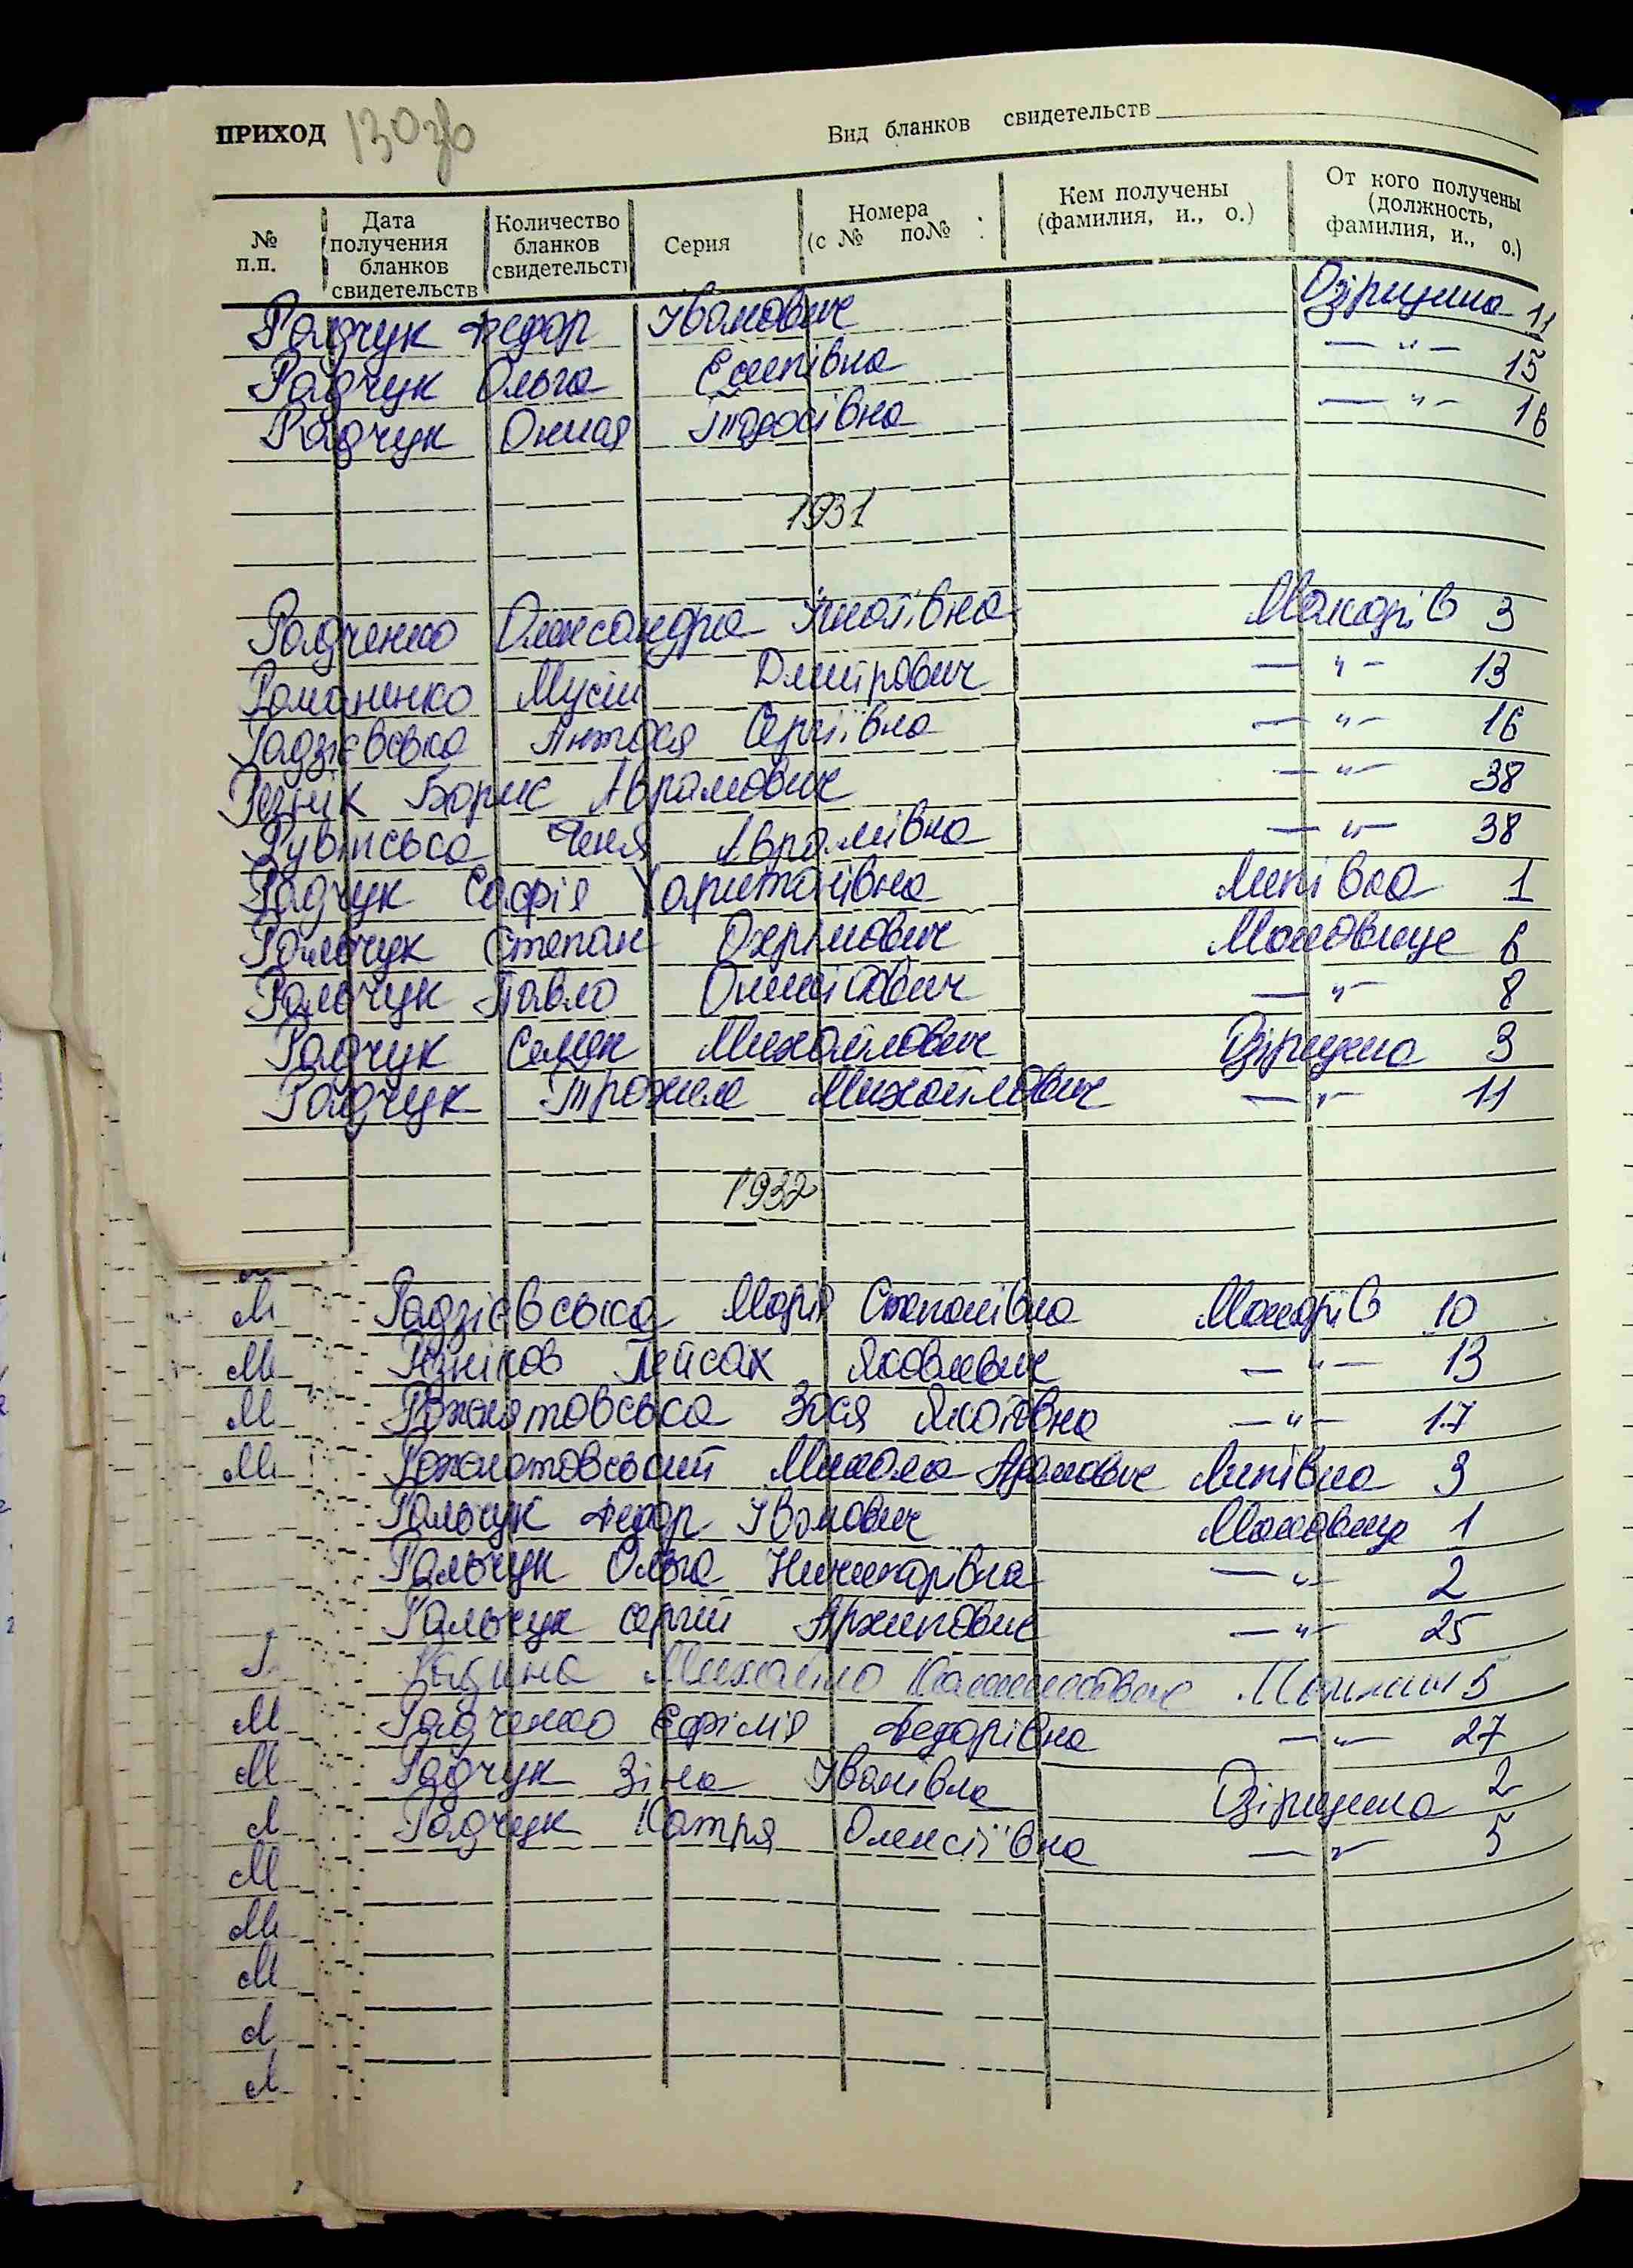 ПРИХОД 130зв
Вид бланков свидетельств
№ п.п.
Дата получения бланков свидетельств
Количество бланков свидетельств
Серия
Номера (с № по №
Кем получены (фамилия, и., о.)
От кого получены (должность, фамилия, и., о.)
Радчук Федор Іванович Озірщина 11
Радчук Ольга Есипівна —"— 15
Радчук Тодосівна —"— 16
1931
Радченко Олександра Гнатівна Макарів 3
Романенко Мусій Дмитрович —"— 13
Радзієвська Антося Сергіївна —"— 16
Резнік Борис Аврамович —"— 38
Рувінська Геня Аврамівна —"— 38
Радчук Софія Харитонівна Липівка 1
Ральчук Степан Охрімович Маковище 6
Ральчук Павло —"— 8
Радчук Семен Михайлович Озірщина 3
Радчук Трохим Михайлович —"— 11
1932
Радзієвська Марія Степанівна Макарів 10
Рєзніков Пейсах Яковлевич —"— 13
Рохолятовська Зося Яковівна —"— 17
Рохолятовський Микола Адамович Липівка 3
Ральчук Федор Іванович Маковище 1
Ральчук Ольга Ничипорівна —"— 2
Ральчук Сергій Архипович —"— 25
М Михайло 5
М Радченко Єфімія Федорівна —"— 27
М Радчук Зіна Іванівна Озірщина 2
М Радчук Катря Олексіївна —"— 5